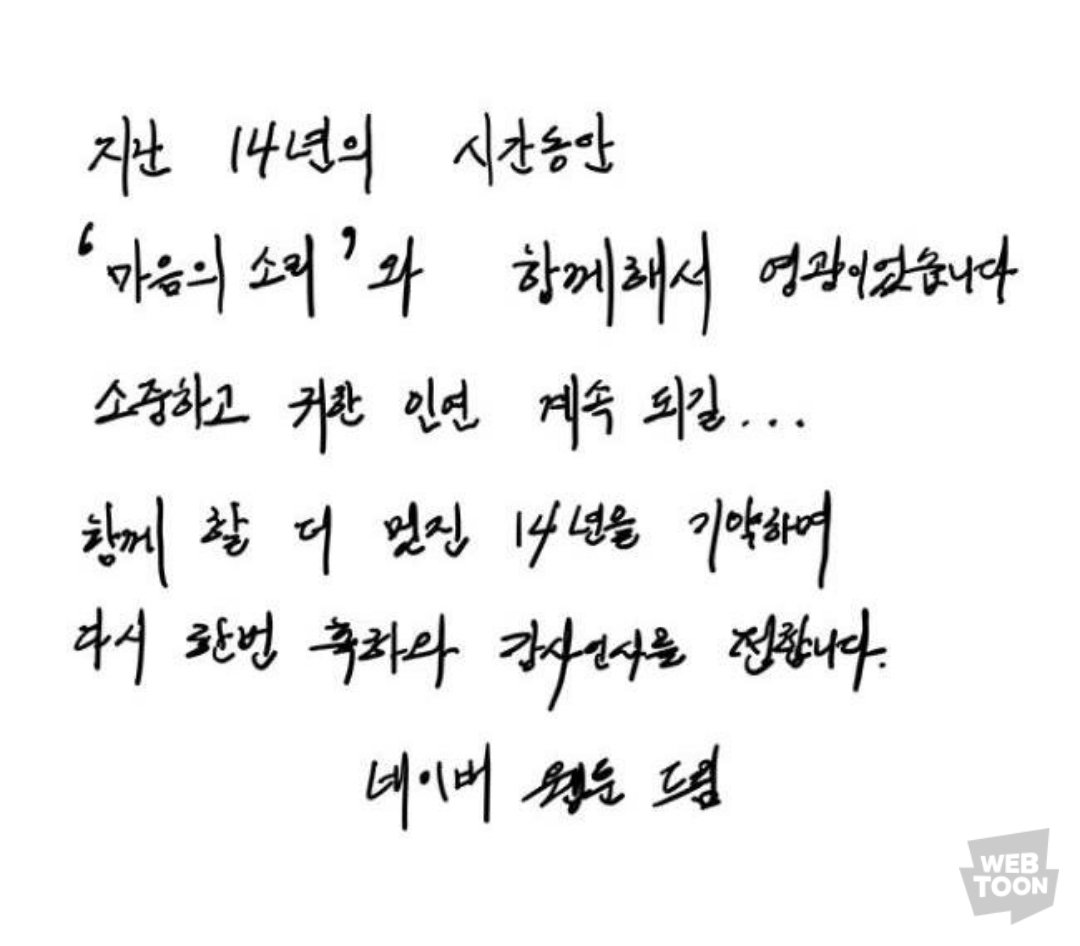 지난 14년의 시간동안
'마음의 소리'와 함께해서 영광이었습니다
소중하고 귀한 인연 계속 되길...
함께 할 더 멋진 14년을 기약하며
다시 한번 축하와 감사인사를 전합니다.
네이버 웹툰 드림
WEB
TOON